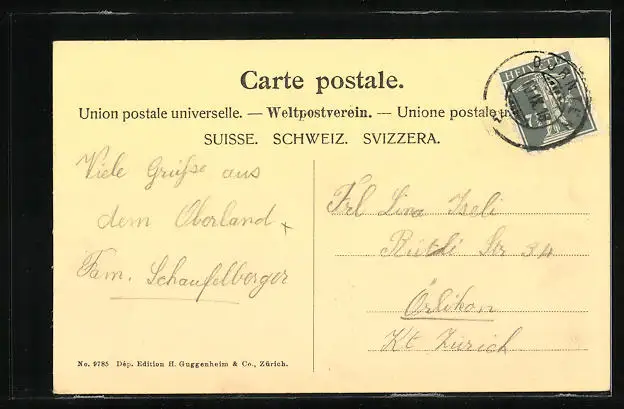 Carte postale.
Union postale universelle. — Weltpostverein. — Unione postale
SUISSE. SCHWEIZ. SVIZZERA.
HELVETIA
Viele Grüsse aus
dem Oberland
Fam. Schaufelberger
Frl Lina Iseli
Rütli Str 34
Örlikon
Kt Zürich
No. 9785 Dép. Edition H. Guggenheim & Co., Zürich.